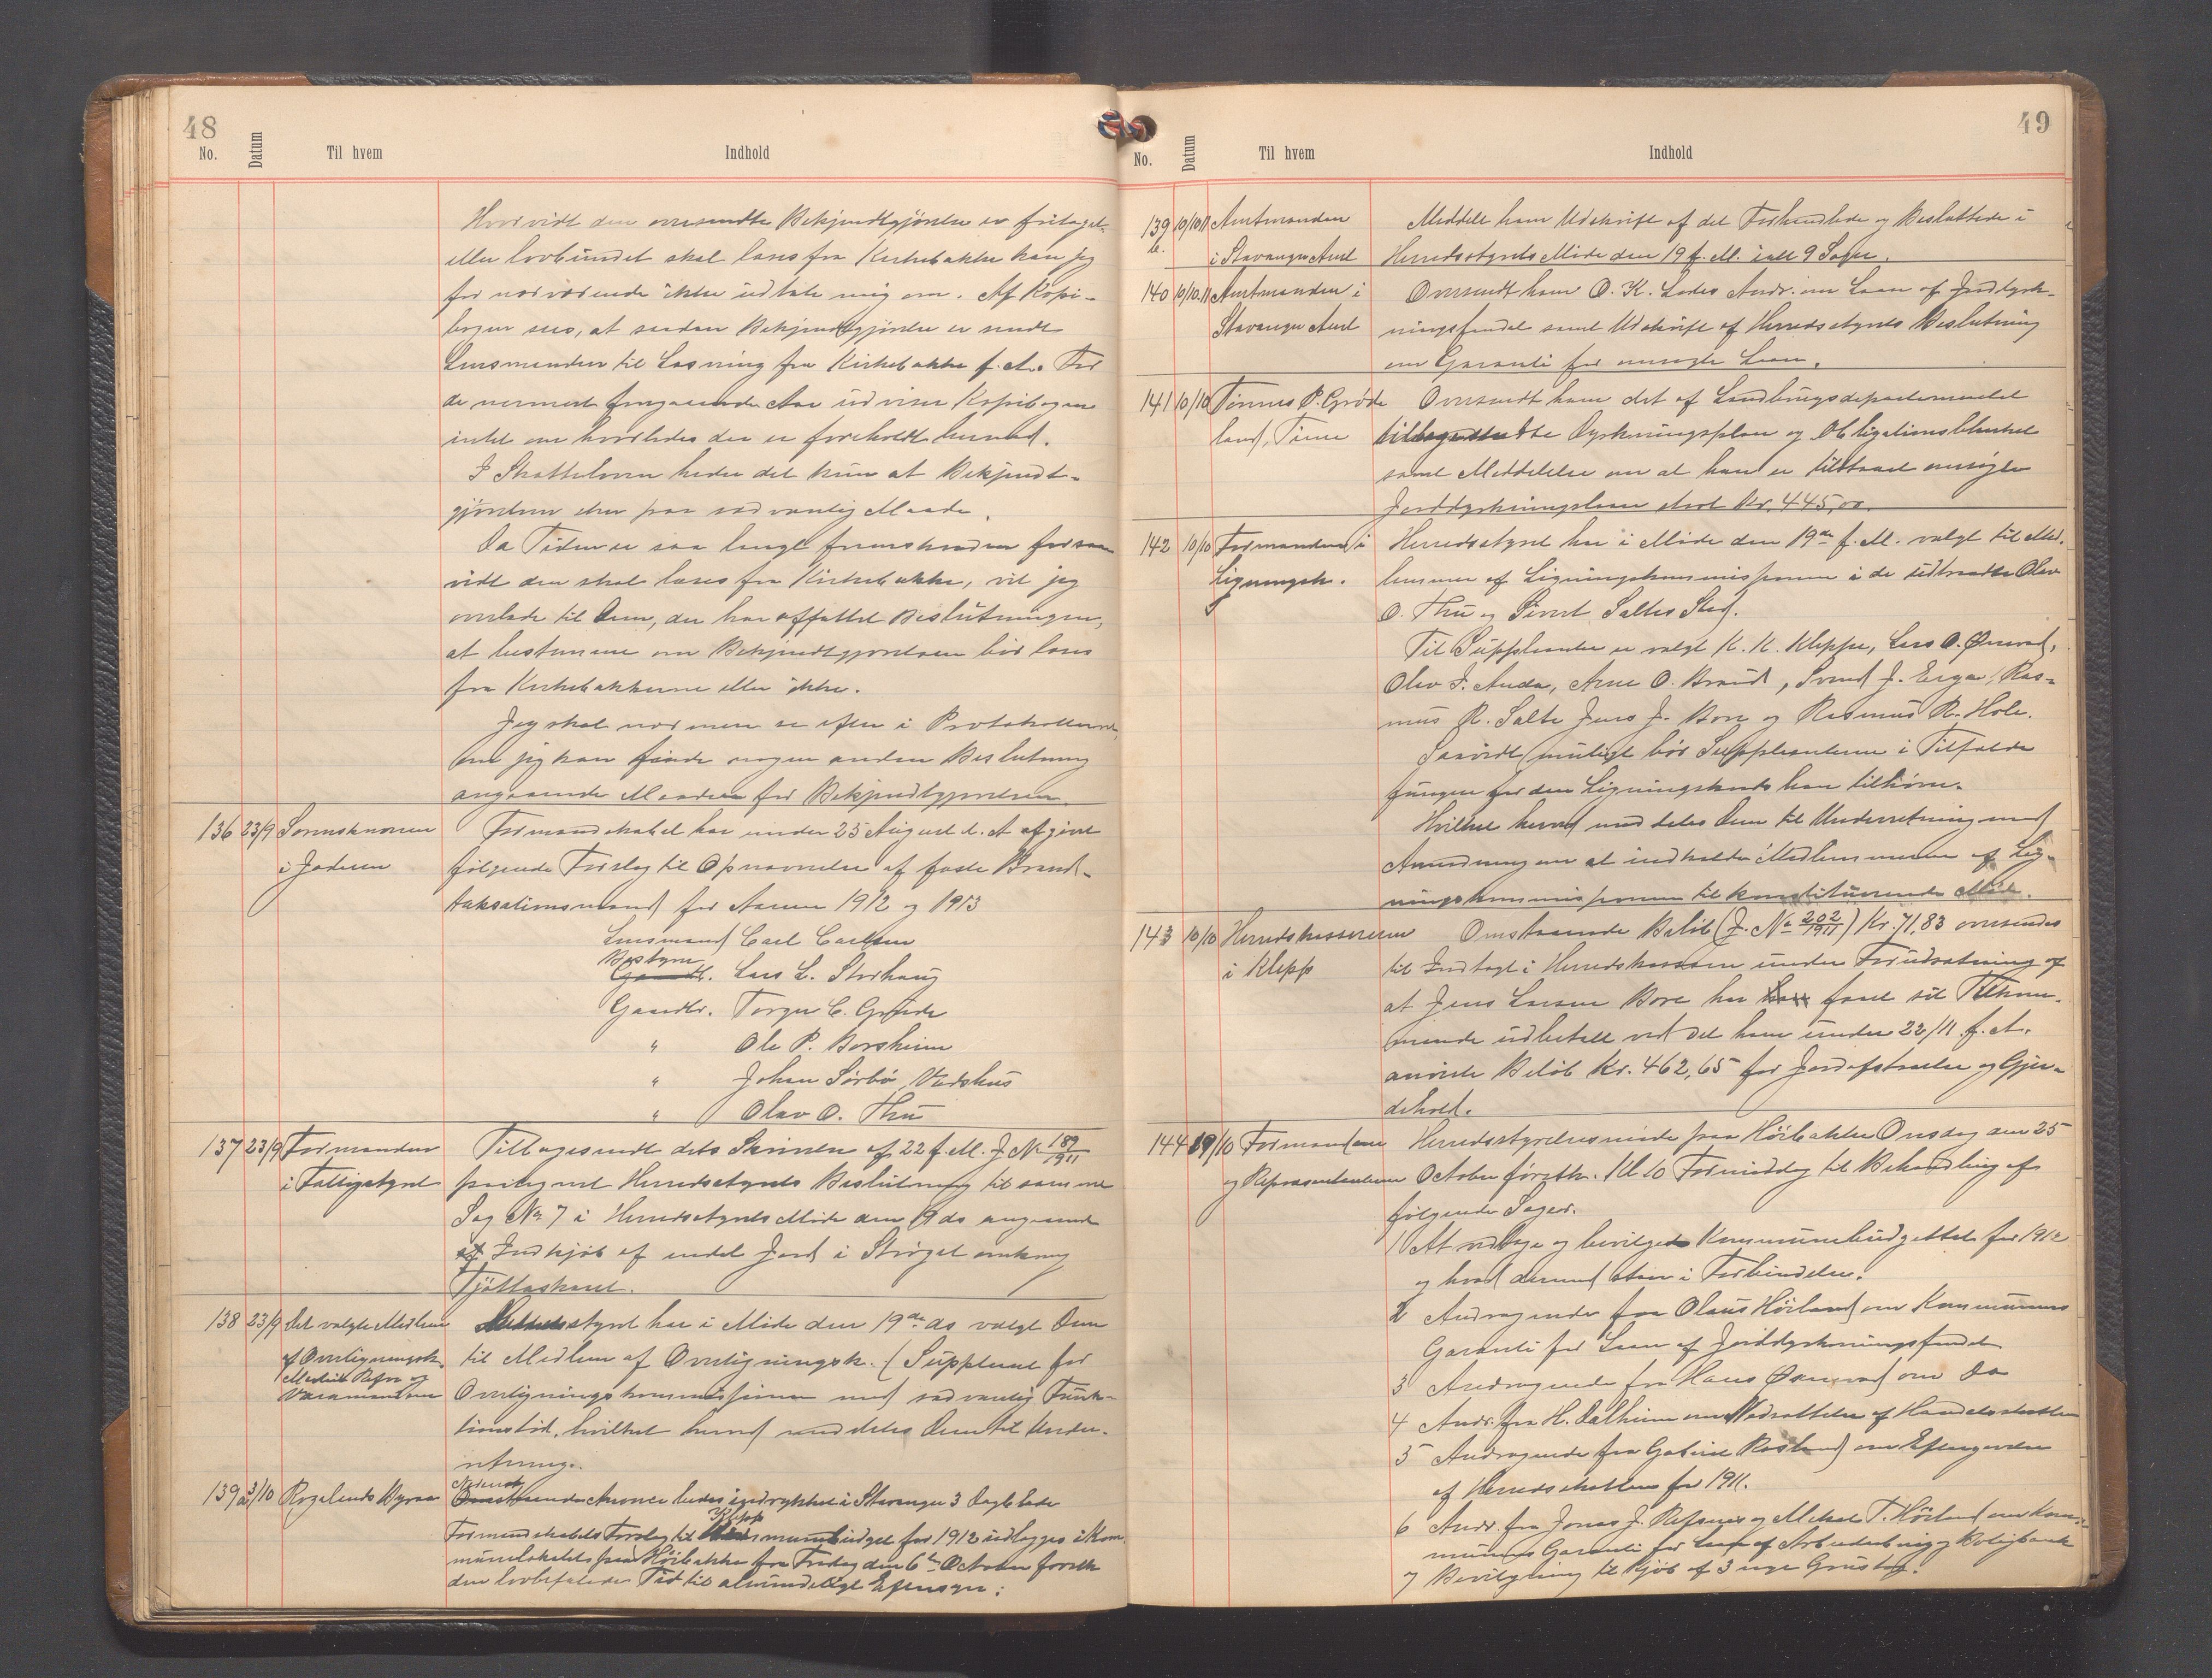 48
No. Datum Til hvem Indhold
Hvorvidt den oversendte Bekjendtgjørelse er fritaget
eller lovbundet skal læses fra Kirkebakke kan jeg
for nærværende ikke udtale mig om. Af Kopi-
bogen sees, at saadan Bekjendtgjørelse er sendt
Lensmanden til Læsning fra Kirkebakke f. A. For
de nærmest foregaaende Aar udviser Kopibogen
intet om hvorledes der er foreholdt hermed.
I Skatteloven heder det kun at Bekjendt-
gjørelsen sker paa sædvanlig Maade.
Da Tiden er saa langt fremskreden forsaa-
vidt den skal læses fra Kirkebakke, vil jeg
overlade til Dem, der har affattet Beslutningen,
at bestemme om Bekjendtgjørelsen bør læses
fra Kirkebakkerne eller ikke.
Jeg skal nærmere se efter i Protokollerne,
om jeg kan finde nogen anden Beslutning
angaaende Maaden for Bekjendtgjørelsen.
136 23/9 Sorenskriveren Formandskabet har under 25 August d. A afgivet
i Jæderen følgende Forslag til Opnævnelse af faste Brand-
taksationsmænd for Aarene 1912 og 1913
Lensmand Carl Carlsen
Bestyrer
Gaardbr. Lars L. Storhaug
Gaardbr. Torger C. Grude
" Ole P. Borsheim
" Johan Sørbø, Vadshus
" Olav O. Thu
137 23/9 Formanden Tilbagesendt dets Skrivelse af 22 f. M. J. No 189/1911
i Fattigstyret paategnet Herredsstyrets Beslutning til samme
Sag No 7 i Herredsstyrets Møde den 19 ds angaaende
Indkjøb af endel Jord i Strøget omkring
Tjøttaskaret.
138 23/9 Det valgte Medlem Herredsstyret har i Møde den 19de ds valgt Dem
af Overligningsk. til Medlem af Overligningsk. (Suppleant for
Overligningskommissionen med sædvanlig Funk-
Varamændene
tionstid, hvilket herved meddeles Dem til Under-
retning.
139a 3/10 Rogalands Hyraa Omstaaende Annonce bedes indrykket i Stavanger 3 Dagblade
Klepp
Formandskabets Forslag til budget for 1912 udlægges i Kom-
munelokalet paa Hørbakke fra Fredag den 6te October førstk.
den lovbefalede Tid til almindeligt Eftersyn.
49
No. Datum Til hvem Indhold
139 b. 10/10 11 Amtmanden Meddelt ham Udskrift af det Forhandlede og Besluttede i
i Stavanger Amt Herredsstyrets Møde den 19 f. M. ialt 9 Sager.
140 10/10.11 Amtmanden i Oversendt ham O. K. Lodes Andr. om Laan af Jorddyrk-
Stavanger Amt ningsfondet samt Udskrift af Herredsstyrets Beslutning
om Garanti for ansøgte Laan.
141 10/10 Tønnes P. Grøde- Oversendt ham det af Landbrugsdepartementet
land, Time tilbagesendte Dyrkningsplan og Obligationsblanket
samt Meddelelse om at han er tilstaaet ansøgte
Jorddyrkningslaan stort Kr. 445,00.
142 10/10 Formanden i Herredsstyret har i Møde den 19de f. M. valgt til Med-
Ligningsk. lemmer af Ligningskommissionen i de udtraadte Olav
O. Thu og Sivert Saltes Sted.
Til Suppleanter er valgt K. K. Kleppe, Lars O. Øxnevad,
Olav I. Anda, Arne O. Braut, Svend J. Erga, Ras-
mus R. Salte Jens J. Bore og Rasmus R. Hole.
Saavidt muligt bør Suppleanterne i Tilfælde
fungere for den Ligningskreds han tilhører.
Hvilket herved meddeles Dem til Underretning med
Anmodning om at indkalde Medlemmerne af Lig-
ningskommissionen til konstituerende Møde.
143 10/10 Herredskassereren Omstaaende Beløb (J. No 202/1911) Kr. 71,83 oversendes
i Klepp til Indtægt i Herredskassen under Forudsætning af
at Jens Larsen Bore har faaet sit Tilkom-
mende udbetalt ved det ham under 22/11 f. A.
anviste Beløb Kr. 462,65 for Jordafstaaelse og Gjer-
dehold.
144 19/10 Formændene Herredsstyrelsesmøde paa Hørbakke Onsdag den 25
og Repræsentanterne October førstk. Kl 10 Formiddag til Behandling af
følgende Sager.
1 At vedtage og bevilge Kommunebudgettet for 1912
og hvad dermed staar i Forbindelse.
2 Andragende fra Olaus Hørland om Kommunens
Garanti for Laan af Jorddyrkningsfondet
3 Andragende fra Hans Øxnevad om Do
4 Andr. fra H. Dalheim om Nedsættelse af Handelsskatten
5 Andragende fra Gabriel Rosland om Eftergivelse
af Herredsskatten for 1911.
6 Andr. fra Jonas J. Refsnes og Mikal T. Hørland om Kom-
munens Garanti for Laan af Arbeiderbrug og Boligbank
7 Bevilgning til Kjøb af 3 nye Grustag.